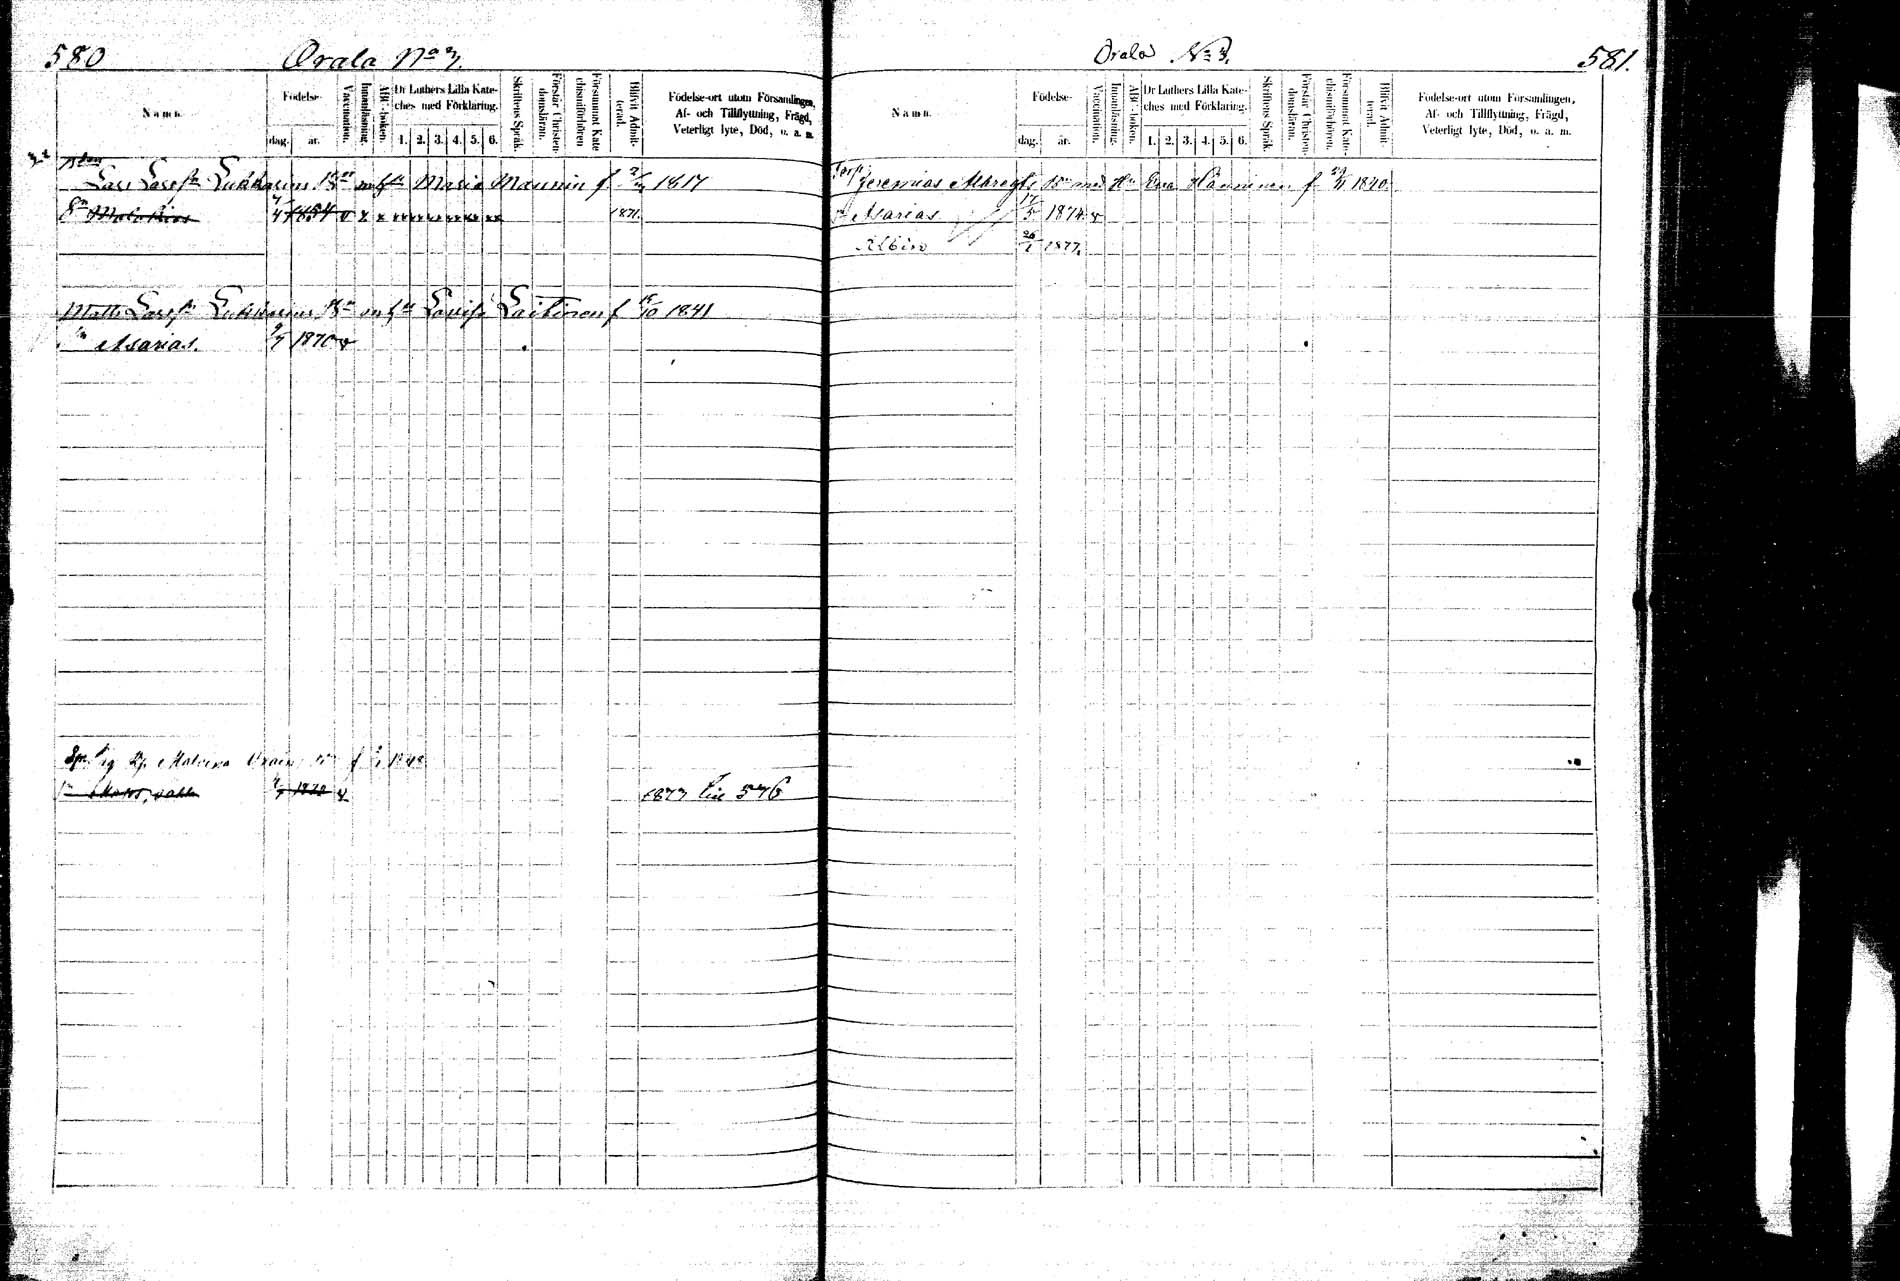 580
Orala No 3.
Namn.
Födelse-
dag. år.
Vaccination.
Innanläsning.
ABC-boken.
Dr Luthers Lilla Kate-
ches med Förklaring.
1. 2. 3. 4. 5. 6.
Skriftens Språk.
Förstår Christen-
domsläran.
Försummat Kate
chismiförhören
Blifvit Admit-
terad.
Födelse-ort utom Församlingen,
Af- och Tillflyttning, Frägd,
Veterligt lyte, Död, o. a. m.
Lars Larsn Maria Maunin f 1817
Sn 1854 v x x 1871.
Matts Larsn Lovisa Laitinen f 15/10 1841
Sn Asarias. 1870 v
f
1873 Live 576
Orala No 3.
581.
Namn.
Födelse-
dag. år.
Vaccination.
Innanläsning.
ABC-boken.
Dr Luthers Lilla Kate-
ches med Förklaring.
1. 2. 3. 4. 5. 6.
Skriftens Språk.
Förstår Christen-
domsläran.
Försummat Kate-
chismiförhören.
Blifvit Admit-
terad.
Födelse-ort utom Församlingen,
Af- och Tillflyttning, Frägd,
Veterligt lyte, Död, o. a. m.
Torp Jeremias med Hu Eva Hänninen f 1840.
Asarias 17/5 1874 v
Albin 26/1 1877.